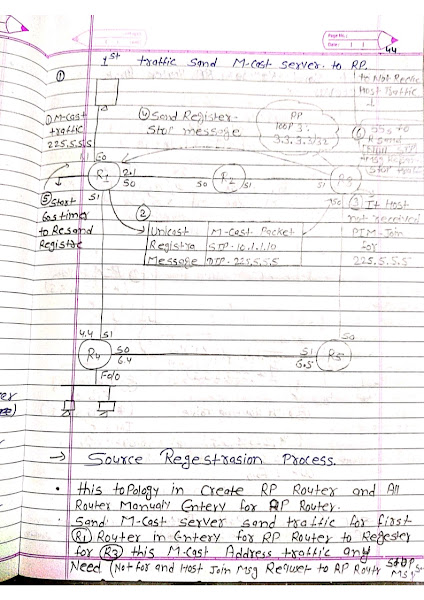 Page No.:
Date:
44
1st traffic sand M-cast server. to RP.
①
to Not Recive
Host traffic
① M-Cast
traffic
225.5.5.5
④ Sand Register-
Stop message
RP
loop 3.
3.3.3.3/32
⑥
sand
1.1 E0
R1
2.1
S0
S0 R2 S1
S1 R3
S0
⑤ Start
60s timer
to Resand
Registre
S1
②
Unicast
Registra
Message
M-Cast Packet
SIP-10.1.1.10
DIP-225.5.5.5
③ If Host
not received
PIM-Join
for
225.5.5.5
4.4 S1
R4
S0
6.4
S0
S1
6.5
R5
Fa0/0
→ Source Regestrasion Process.
• this toPology in Create RP Router and All
Router Manualy Entery for RP Router.
• Sand M-Cast server sand traffic for first
R1 Router in Entery for RP Router to Regester
for R3 this M-Cast Address traffic any
Need (Not for and Host Join Msg Request to RP Routr Stop
Msg